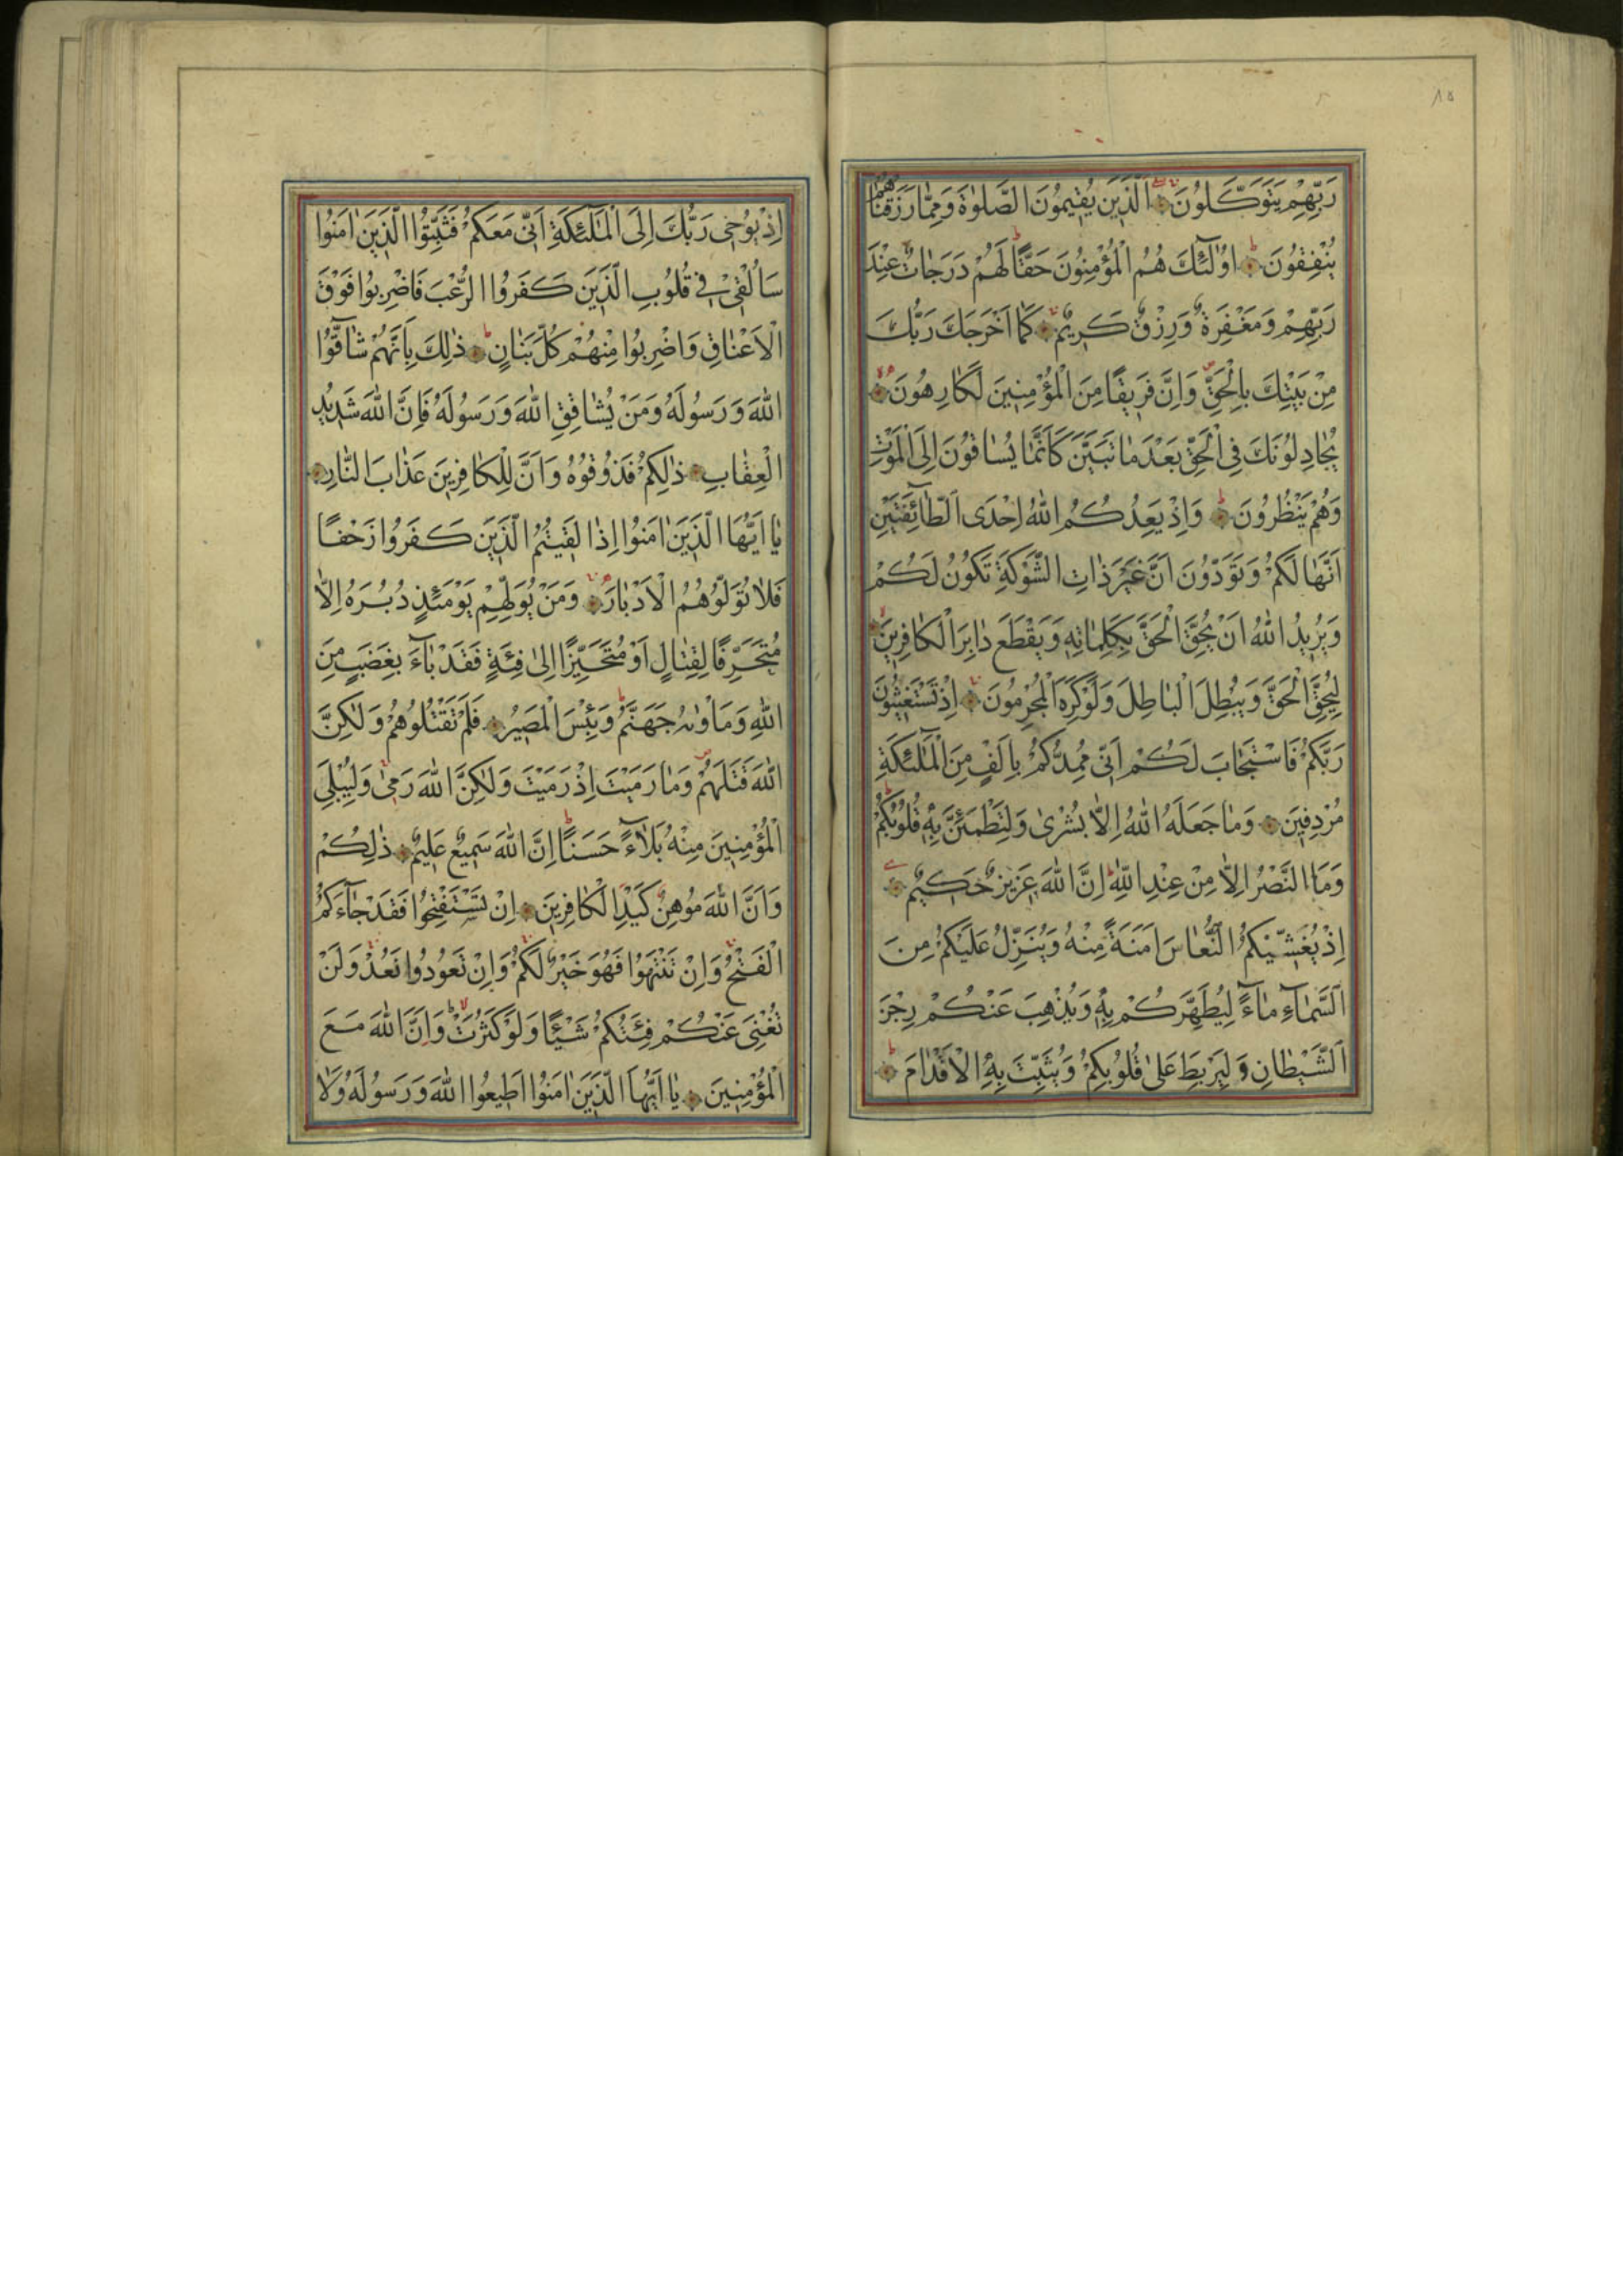 ٨٥
رَبِّهِمْ يَتَوَكَّلُونَ اَلَّذِينَ يُقِيمُونَ الصَّلٰوةَ وَمِمَّا رَزَقْنَاهُمْ
يُنْفِقُونَ اُولٰٓئِكَ هُمُ الْمُؤْمِنُونَ حَقًّا لَهُمْ دَرَجَاتٌ عِنْدَ
رَبِّهِمْ وَمَغْفِرَةٌ وَرِزْقٌ كَرِيمٌ كَمَا اَخْرَجَكَ رَبُّكَ
مِنْ بَيْتِكَ بِالْحَقِّ وَاِنَّ فَرِيقًا مِنَ الْمُؤْمِنِينَ لَكَارِهُونَ
يُجَادِلُونَكَ فِي الْحَقِّ بَعْدَ مَا تَبَيَّنَ كَاَنَّمَا يُسَاقُونَ اِلَى الْمَوْتِ
وَهُمْ يَنْظُرُونَ وَاِذْ يَعِدُكُمُ اللّٰهُ اِحْدَى الطَّآئِفَتَيْنِ
اَنَّهَا لَكُمْ وَتَوَدُّونَ اَنَّ غَيْرَ ذَاتِ الشَّوْكَةِ تَكُونُ لَكُمْ
وَيُرِيدُ اللّٰهُ اَنْ يُحِقَّ الْحَقَّ بِكَلِمَاتِهِ وَيَقْطَعَ دَابِرَ الْكَافِرِينَ
لِيُحِقَّ الْحَقَّ وَيُبْطِلَ الْبَاطِلَ وَلَوْ كَرِهَ الْمُجْرِمُونَ اِذْ تَسْتَغِيثُونَ
رَبَّكُمْ فَاسْتَجَابَ لَكُمْ اَنِّى مُمِدُّكُمْ بِاَلْفٍ مِنَ الْمَلٰٓئِكَةِ
مُرْدِفِينَ وَمَا جَعَلَهُ اللّٰهُ اِلَّا بُشْرٰى وَلِتَطْمَئِنَّ بِهِ قُلُوبُكُمْ
وَمَا النَّصْرُ اِلَّا مِنْ عِنْدِ اللّٰهِ اِنَّ اللّٰهَ عَزِيزٌ حَكِيمٌ
اِذْ يُغَشِّيكُمُ النُّعَاسَ اَمَنَةً مِنْهُ وَيُنَزِّلُ عَلَيْكُمْ مِنَ
السَّمَآءِ مَآءً لِيُطَهِّرَكُمْ بِهِ وَيُذْهِبَ عَنْكُمْ رِجْزَ
الشَّيْطَانِ وَلِيَرْبِطَ عَلٰى قُلُوبِكُمْ وَيُثَبِّتَ بِهِ الْاَقْدَامَ
اِذْ يُوحِى رَبُّكَ اِلَى الْمَلٰٓئِكَةِ اَنِّى مَعَكُمْ فَثَبِّتُوا الَّذِينَ اٰمَنُوا
سَاُلْقِى فِى قُلُوبِ الَّذِينَ كَفَرُوا الرُّعْبَ فَاضْرِبُوا فَوْقَ
الْاَعْنَاقِ وَاضْرِبُوا مِنْهُمْ كُلَّ بَنَانٍ ذٰلِكَ بِاَنَّهُمْ شَآقُّوا
اللّٰهَ وَرَسُولَهُ وَمَنْ يُشَاقِقِ اللّٰهَ وَرَسُولَهُ فَاِنَّ اللّٰهَ شَدِيدُ
الْعِقَابِ ذٰلِكُمْ فَذُوقُوهُ وَاَنَّ لِلْكَافِرِينَ عَذَابَ النَّارِ
يَا اَيُّهَا الَّذِينَ اٰمَنُوا اِذَا لَقِيتُمُ الَّذِينَ كَفَرُوا زَحْفًا
فَلَا تُوَلُّوهُمُ الْاَدْبَارَ وَمَنْ يُوَلِّهِمْ يَوْمَئِذٍ دُبُرَهُ اِلَّا
مُتَحَرِّفًا لِقِتَالٍ اَوْ مُتَحَيِّزًا اِلٰى فِئَةٍ فَقَدْ بَآءَ بِغَضَبٍ مِنَ
اللّٰهِ وَمَاْوٰيهُ جَهَنَّمُ وَبِئْسَ الْمَصِيرُ فَلَمْ تَقْتُلُوهُمْ وَلٰكِنَّ
اللّٰهَ قَتَلَهُمْ وَمَا رَمَيْتَ اِذْ رَمَيْتَ وَلٰكِنَّ اللّٰهَ رَمٰى وَلِيُبْلِىَ
الْمُؤْمِنِينَ مِنْهُ بَلَآءً حَسَنًا اِنَّ اللّٰهَ سَمِيعٌ عَلِيمٌ ذٰلِكُمْ
وَاَنَّ اللّٰهَ مُوهِنُ كَيْدِ الْكَافِرِينَ اِنْ تَسْتَفْتِحُوا فَقَدْ جَآءَكُمُ
الْفَتْحُ وَاِنْ تَنْتَهُوا فَهُوَ خَيْرٌ لَكُمْ وَاِنْ تَعُودُوا نَعُدْ وَلَنْ
تُغْنِىَ عَنْكُمْ فِئَتُكُمْ شَيْئًا وَلَوْ كَثُرَتْ وَاَنَّ اللّٰهَ مَعَ
الْمُؤْمِنِينَ يَا اَيُّهَا الَّذِينَ اٰمَنُوا اَطِيعُوا اللّٰهَ وَرَسُولَهُ وَلَا